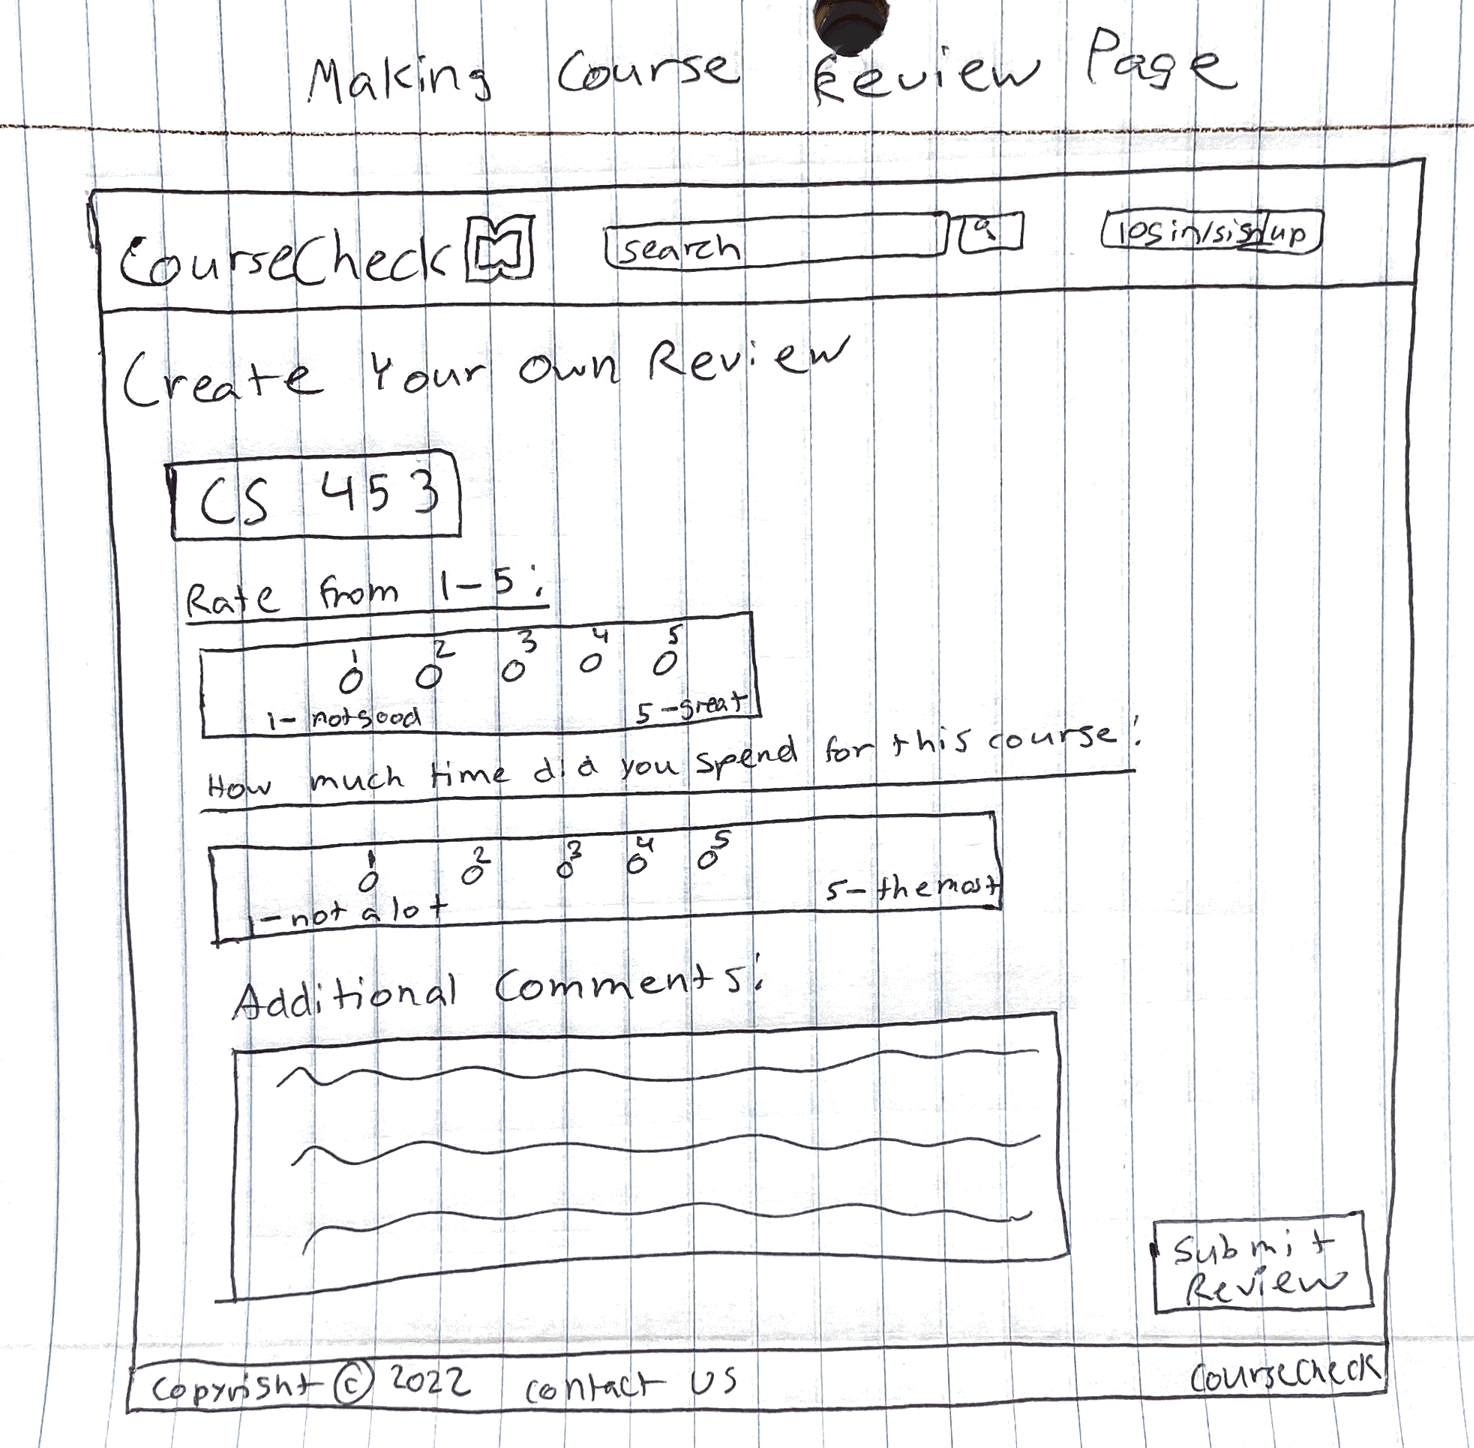 Making Course Review Page
CourseCheck
search
login/signup
Create Your Own Review
CS 453
Rate from 1-5:
1 2 3 4 5
1- not good 5-great
How much time did you spend for this course:
1 2 3 4 5
1-not a lot 5-the most
Additional Comments:
Submit
Review
Copyright © 2022 Contact US CourseCheck